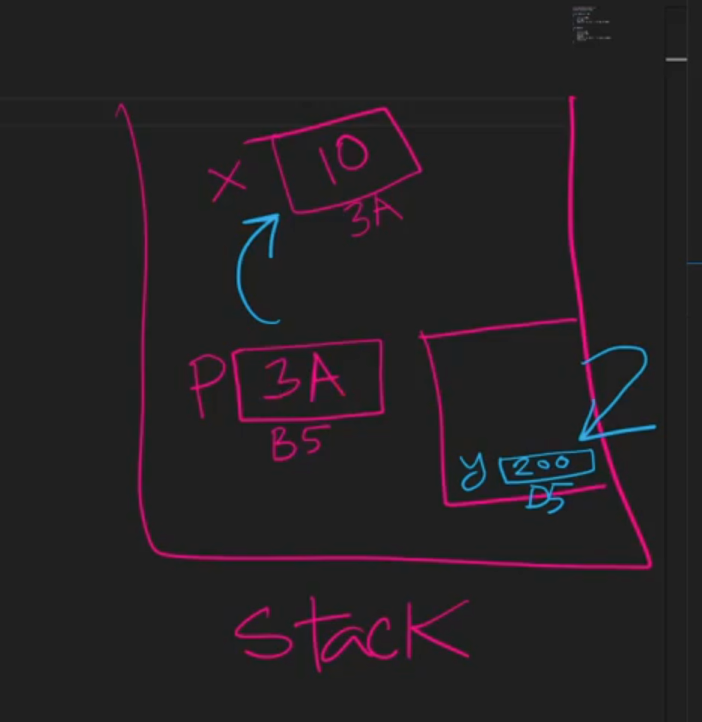 x 10
3A
P 3A
B5
y 200
D5
Stack